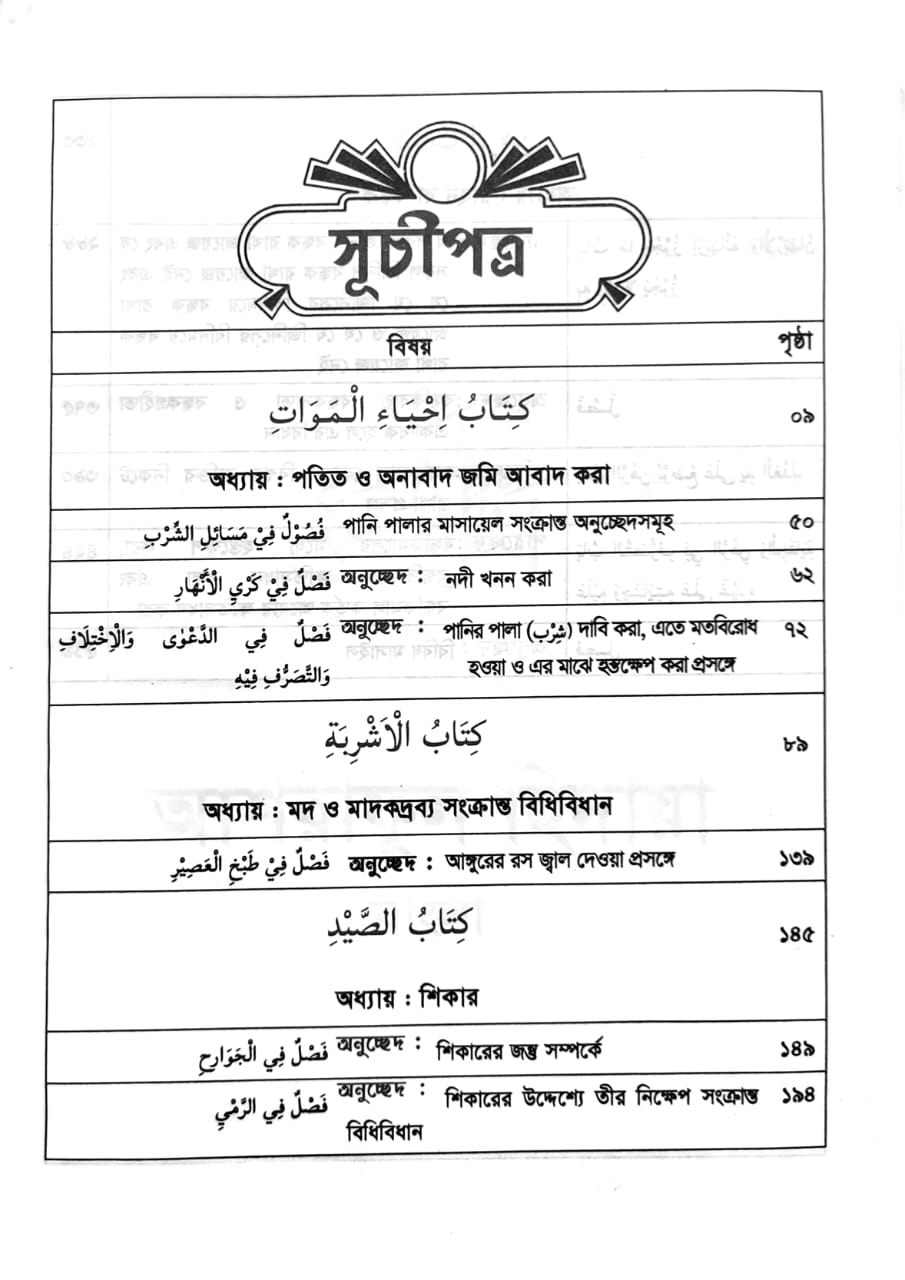 সূচীপত্র
বিষয় পৃষ্ঠা
كِتَابُ اِحْيَاءِ الْمَوَاتِ ০৯
অধ্যায় : পতিত ও অনাবাদ জমি আবাদ করা
فُصُوْلٌ فِيْ مَسَائِلِ الشِّرْبِ পানি পালার মাসায়েল সংক্রান্ত অনুচ্ছেদসমূহ ৫০
فَصْلٌ فِيْ كَرْيِ الْأَنْهَارِ অনুচ্ছেদ : নদী খনন করা ৬২
فَصْلٌ فِي الدَّعْوٰى وَالْاِخْتِلَافِ অনুচ্ছেদ : পানির পালা (شِرْب) দাবি করা, এতে মতবিরোধ ৭২
وَالتَّصَرُّفِ فِيْهِ হওয়া ও এর মাঝে হস্তক্ষেপ করা প্রসঙ্গে
كِتَابُ الْاَشْرِبَةِ ৮৯
অধ্যায় : মদ ও মাদকদ্রব্য সংক্রান্ত বিধিবিধান
فَصْلٌ فِيْ طَبْخِ الْعَصِيْرِ অনুচ্ছেদ : আঙ্গুরের রস জ্বাল দেওয়া প্রসঙ্গে ১৩৯
كِتَابُ الصَّيْدِ ১৪৫
অধ্যায় : শিকার
فَصْلٌ فِي الْجَوَارِحِ অনুচ্ছেদ : শিকারের জন্তু সম্পর্কে ১৪৯
فَصْلٌ فِي الرَّمْيِ অনুচ্ছেদ : শিকারের উদ্দেশ্যে তীর নিক্ষেপ সংক্রান্ত ১৯৪
বিধিবিধান